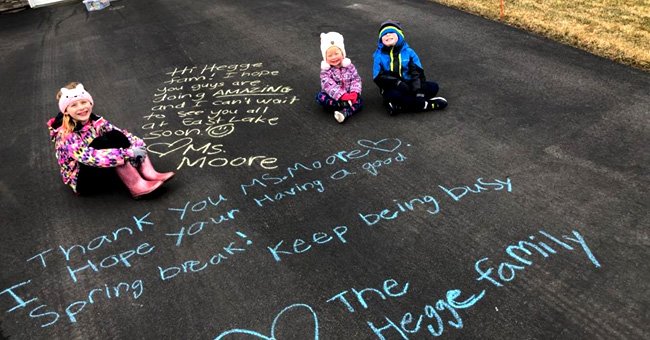 Hi Hegge
fam! I hope
you guys are
doing AMAZING
and I can't wait
to see you all
at East Lake
soon!
Ms.
Moore
Thank you Ms. Moore.
I Hope your Having a good
Spring break! Keep being busy
The
Hegge family